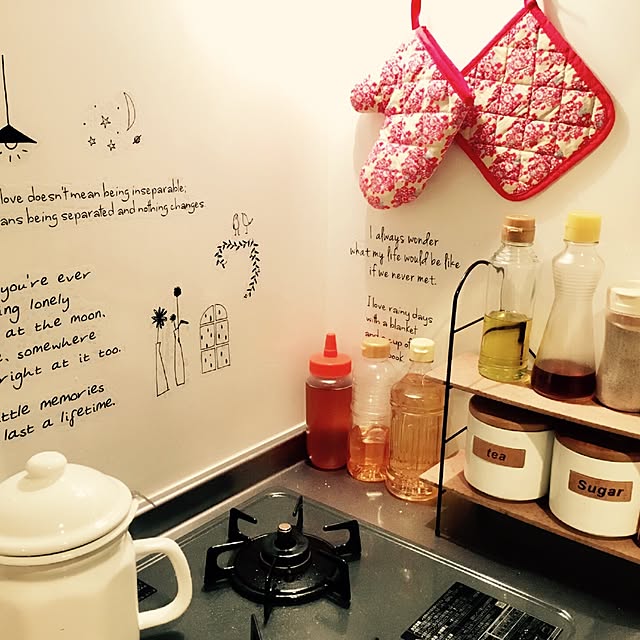 love doesn't mean being inseparable;
being separated and nothing changes.
you're ever
lonely
at the moon.
somewhere
right at it too.
memories
last a lifetime.
I always wonder
what my life would be like
if we never met.
I love rainy days
with a blanket
tea
Sugar